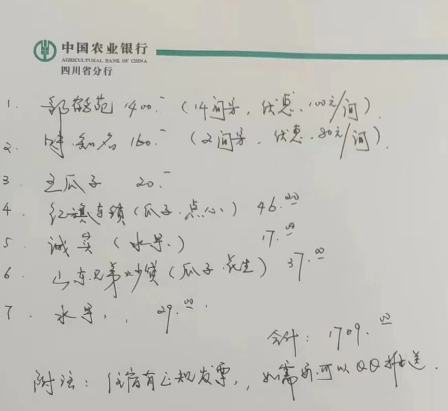 中国农业银行
AGRICULTURAL BANK OF CHINA
四川省分行
1. 郵苑 1400.- (14间房,优惠.100元/间)
2. 160.- (2间房,优惠.80元/间).
3 王瓜子 20.-
4. 红旗连锁(瓜子.点心.) 46.00
5. 诚真(水果.) 17.00
6. 山东兄弟炒货(瓜子.花生) 37.00
7. 水果.. 29.00.
合计: 1709.00
附注:住宿有正规发票,,如需所可以QQ推送.